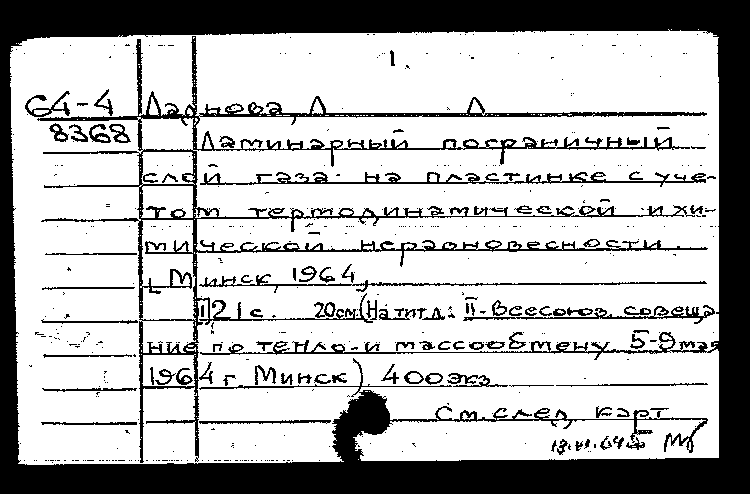 1.
64-4 Ладнова, Л Л
8368 Ламинарный пограничный
слой газа на пластинке с уче-
том термодинамической и хи-
мической неравновесности.
Минск, 1964,
21 с. 20см. (На тит. л.: II-Всесоюз. совеща-
ние по тепло-и массообмену 5-9 мая
1964 г. Минск) 400 экз
См. след. карт